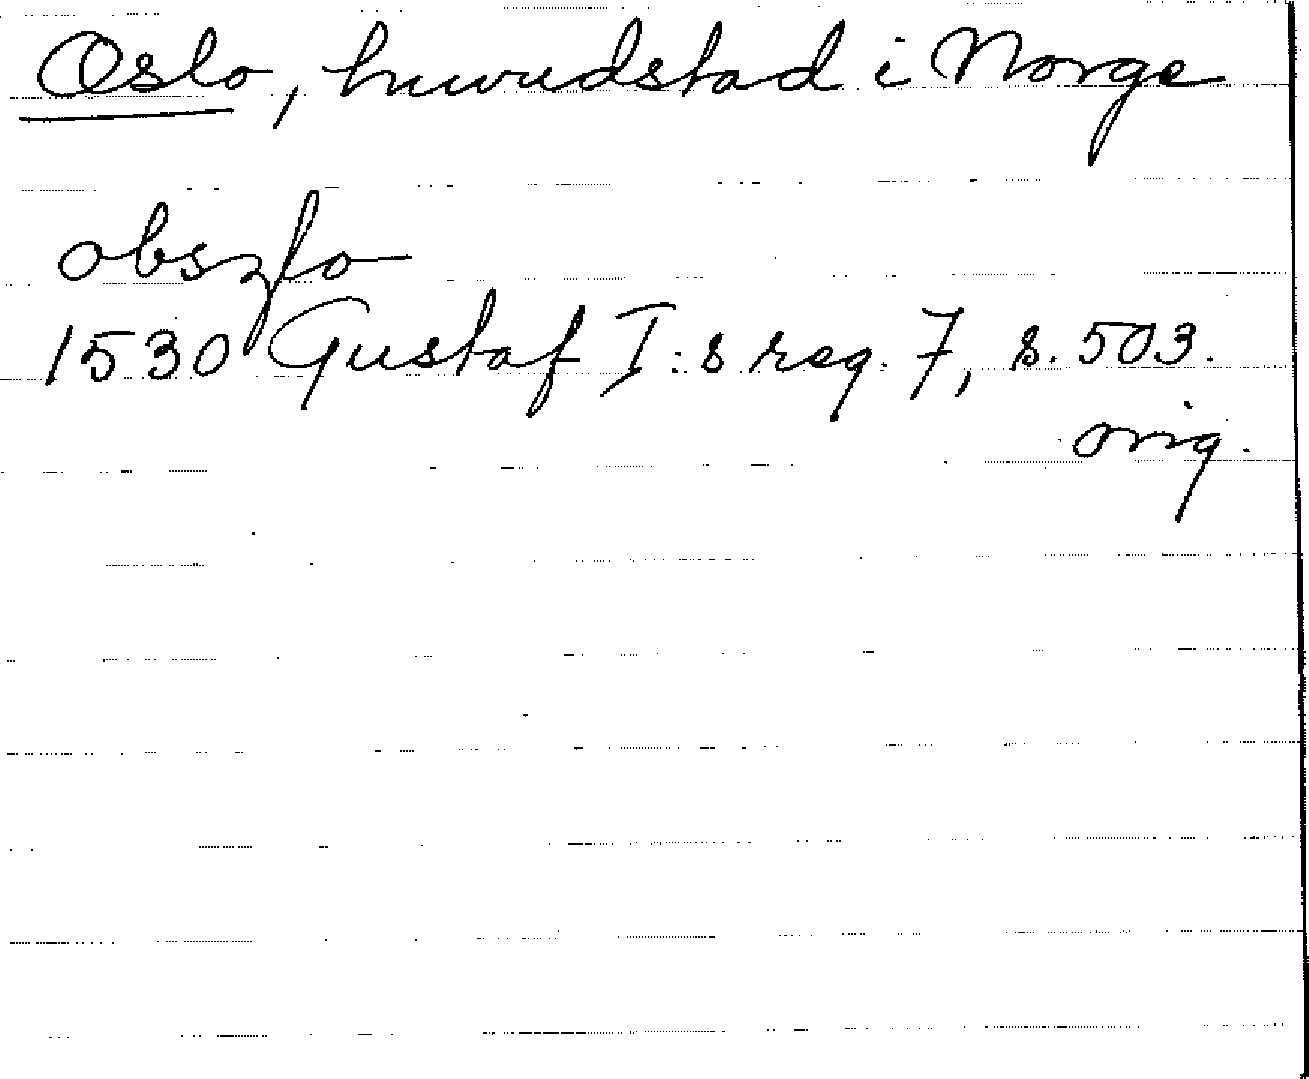 Oslo, huvudstad i Norge
obszlo
1530 Gustaf I:s reg. 7, s. 503.
orig.